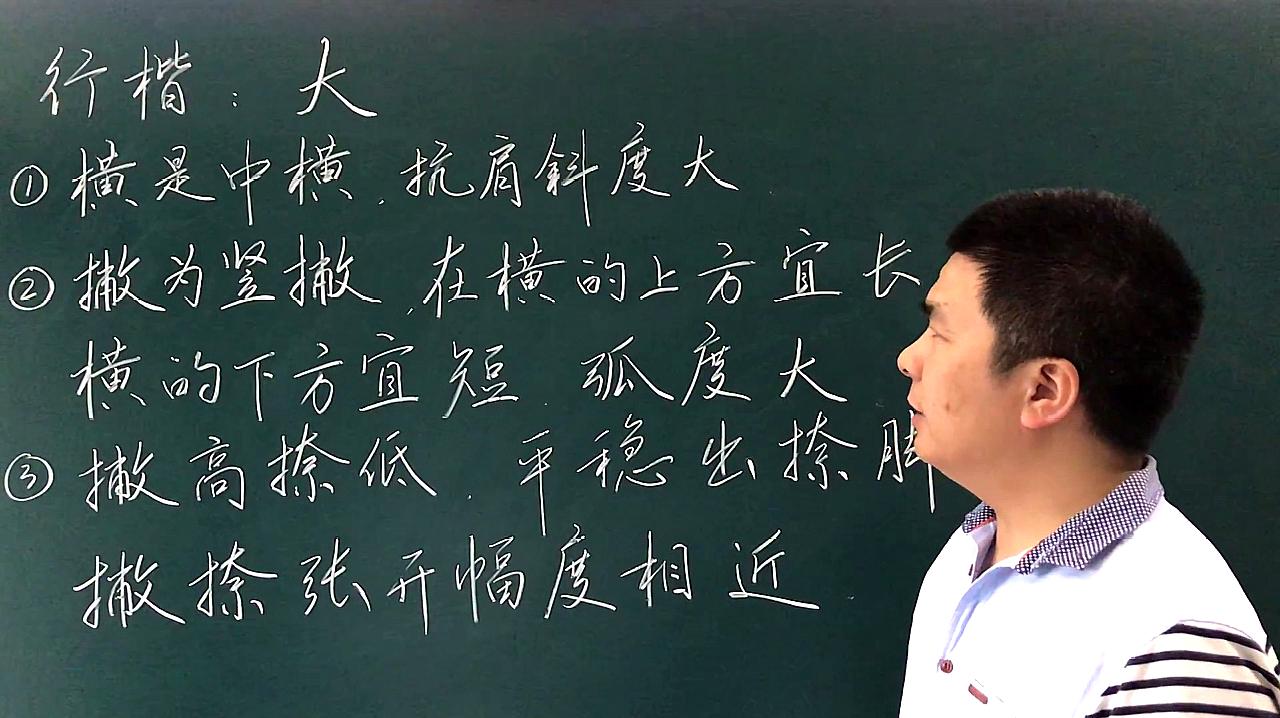 行楷：大
①横是中横，抗肩斜度大．
②撇为竖撇，在横的上方宜长
横的下方宜短．弧度大
③撇高捺低．平稳出捺脚
撇捺张开幅度相近．